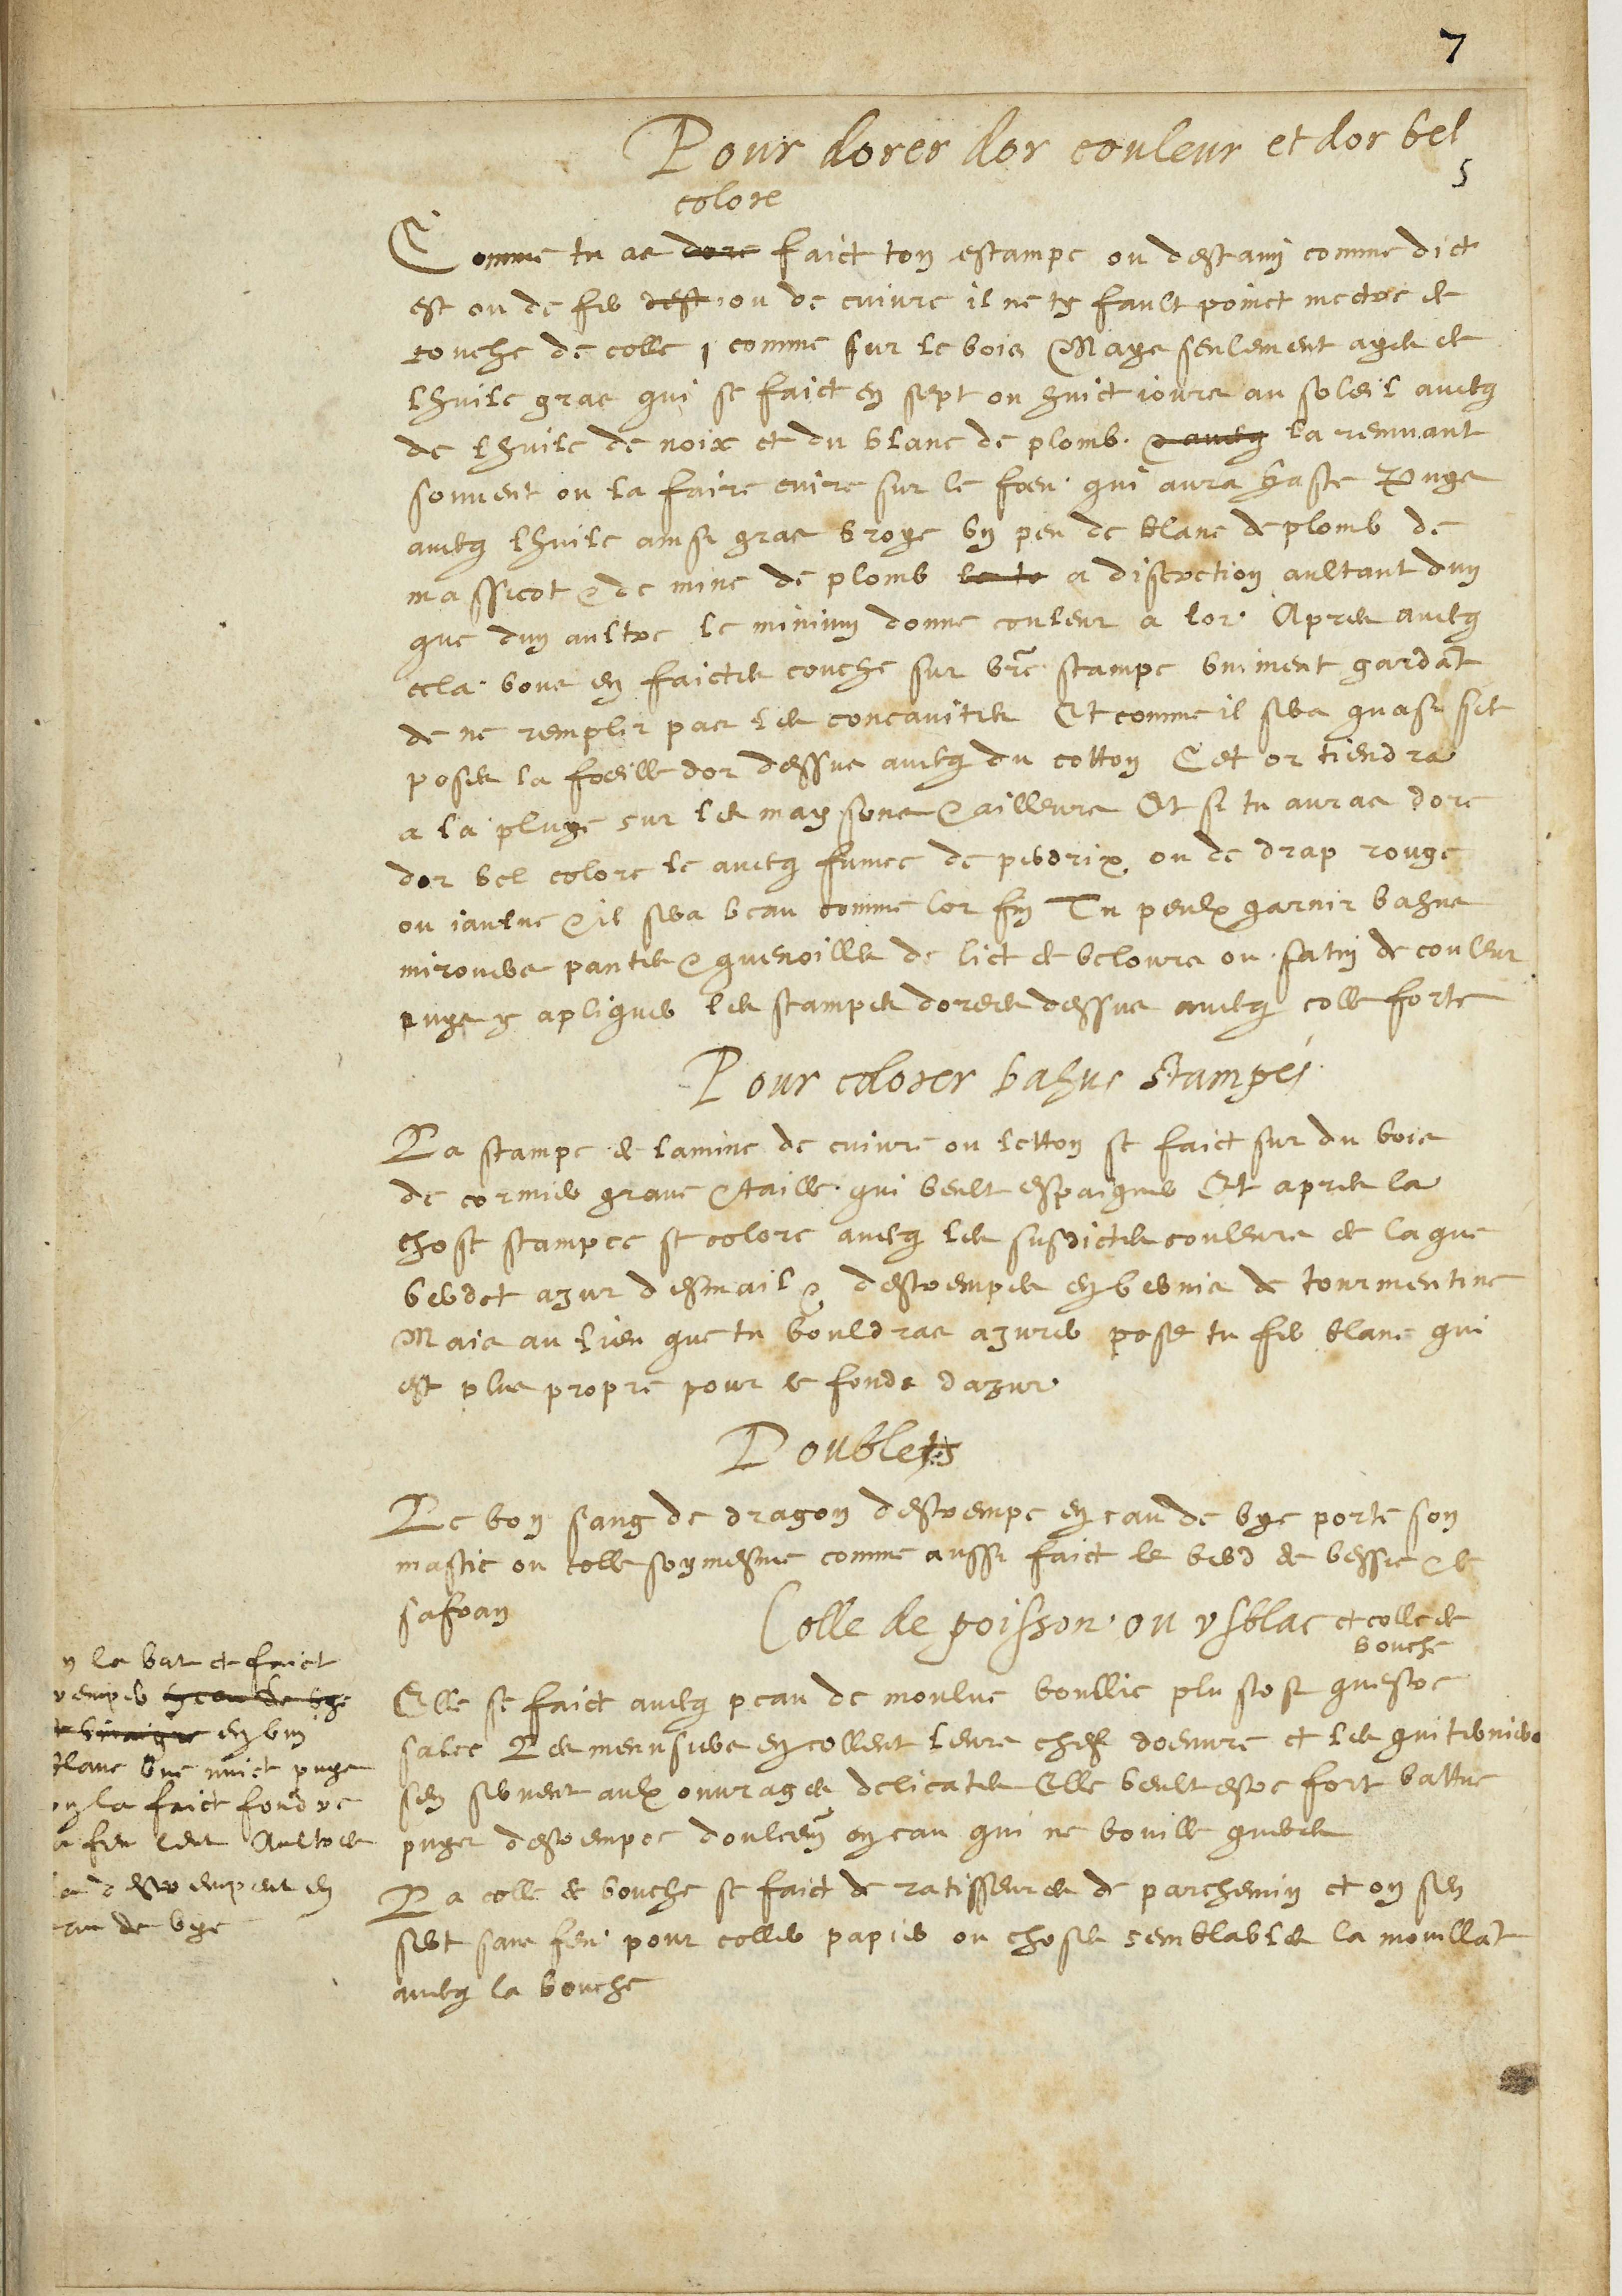 7
Pour dorer dor couleur et dor bel
5
colore
Comme tu as dore faict ton estampe ou destain comme dict
est ou de fer dest ou de cuivre il ne ty fault poinct mectre de
couche de colle comme sur le bois Mays seulement ayes de
lhuile gras qui se faict en sept ou huict iours au soleil avecq
de lhuile de noix et du blanc de plomb & avecq la remuant
souvent ou la faire cuire sur le foeu qui aura haste Puys
avecq lhuile ainsi gras broye un peu de blanc de plomb de
massicot & de mine de plomb a discretion aultant dun
que dun aultre le minium donne couleur a lor Apres avecq
cela vous en faictes couche sur vre stampe uniment gardat
de ne remplir pas les concavites Et comme il sera quasi sec
poses la foeille dor dessus avecq du cotton Cet or tiendra
a la pluye sur les maysons & ailleurs Et si tu auras dore
dor bel colore le avecq fumee de perdrix ou de drap rouge
ou iaulne & il sera beau comme lor fin Tu peulx garnir bahus
mirouers pantes & quenoilles de lict de velours ou satin de couleur
puys y apliquer les stampes dorees dessus avecq colle forte
Pour colorer bahus stampes
La stampe de lamine de cuivre ou letton se faict sur du bois
de cormier grave & taille qui veult espargner Et apres la
chose stampee se colore avecq les susdictes couleurs de laque
verdet azur desmail & destrempes en vernis de tourmentine
Mais au lieu que tu vouldras azurer pose tu fer blanc qui
est plus propre pour le fonds dazur
Doublets
Le bon sang de dragon destrempe en eau de vye porte son
mastic ou colle soymesme comme aussi faict le verd de vessie & le
safran
Colle de poisson ou usblac et colle de
bouche
Elle se faict avecq peau de moulue boullie plustost questre
salee Les menusiers en collent leurs chefs doeuvre et les guiterniers
sen servent aulx ouvrages delicates Elle veult estre fort battue
puys destrempee doulcem en eau qui ne bouille gueres
La colle de bouche se faict de ratisseures de parchemin et on sen
sert sans feu pour coller papier ou choses semblables la mouillat
avecq la bouche
n la bat et faict
remper en eau de vye
vinaigre en vin
blanc une nuict puys
on la faict fondre
a feu lent Aultres
la destrempent en
eau de vye